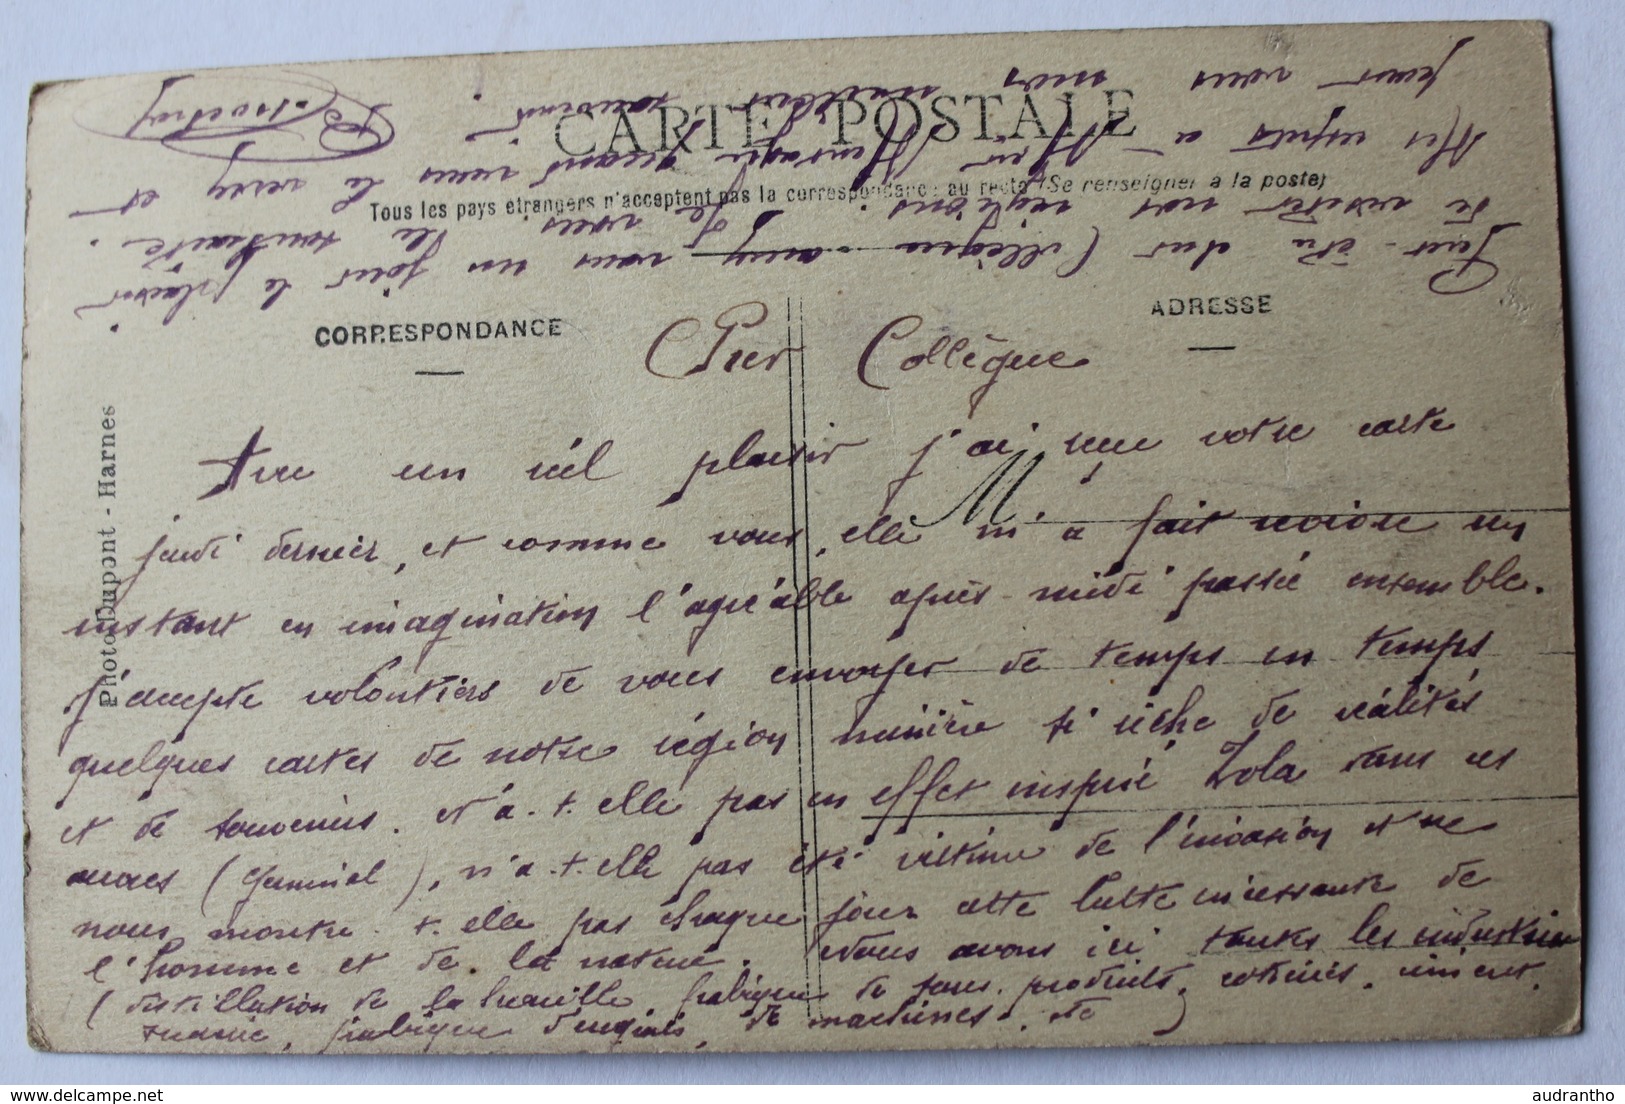 CARTE POSTALE
Tous les pays étrangers n'acceptent pas la correspondance au recto (Se renseigner à la poste)
CORRESPONDANCE
ADRESSE
Photo Dupont - Harnes
M
Cher Collègue
Avec un réel plaisir j'ai reçu votre carte
jeudi dernier, et comme vous, elle m'a fait revivre un
instant en imagination l'agréable après-midi passée ensemble.
J'accepte volontiers de vous envoyer de temps en temps
quelques cartes de notre région minière si riche de réalités
et de souvenirs. N'a-t-elle pas en effet inspiré Zola dans ses
œuvres (Germinal), n'a-t-elle pas été victime de l'invasion et ne
nous montre-t-elle pas chaque jour cette lutte incessante de
l'homme et de la nature. Nous avons ici toutes les industries
(distillation de la houille, fabrique de sous-produits, cokeries, ciment,
fabrique d'engrais, de machines, etc)
Peut-être cher Collègue aurez-vous un jour le plaisir
de visiter nos régions. Je vous le souhaite.
Mes respects à Mer quand vous la verrez et
pour vous mes meilleurs souvenirs.
audrantho